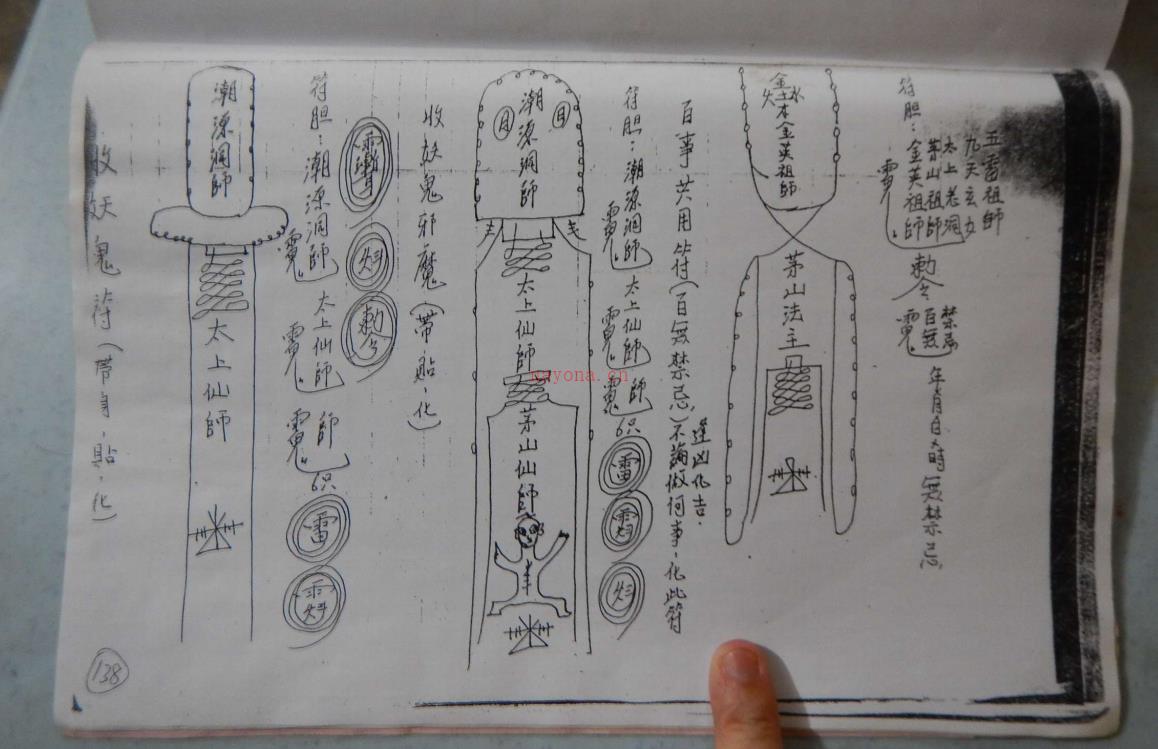 五雷祖師
九天玄女
太上老祖
茅山祖師
符胆：金英祖師
敕令
百無禁忌
年月日時無禁忌
金木水火土
金英祖師
茅山法主
逢凶化吉.
百事共用符（百無禁忌）不論做何事，化此符
符胆：潮源洞師
太上仙師
師
雷
目
目
潮源洞師
太上仙師
茅山仙師
收妖鬼邪魔（帶，貼，化）
敕令
符胆：潮源洞師
太上仙師
師
雷
潮源洞師
太上仙師
收妖鬼符（帶身，貼，化）
138
kayona.cn